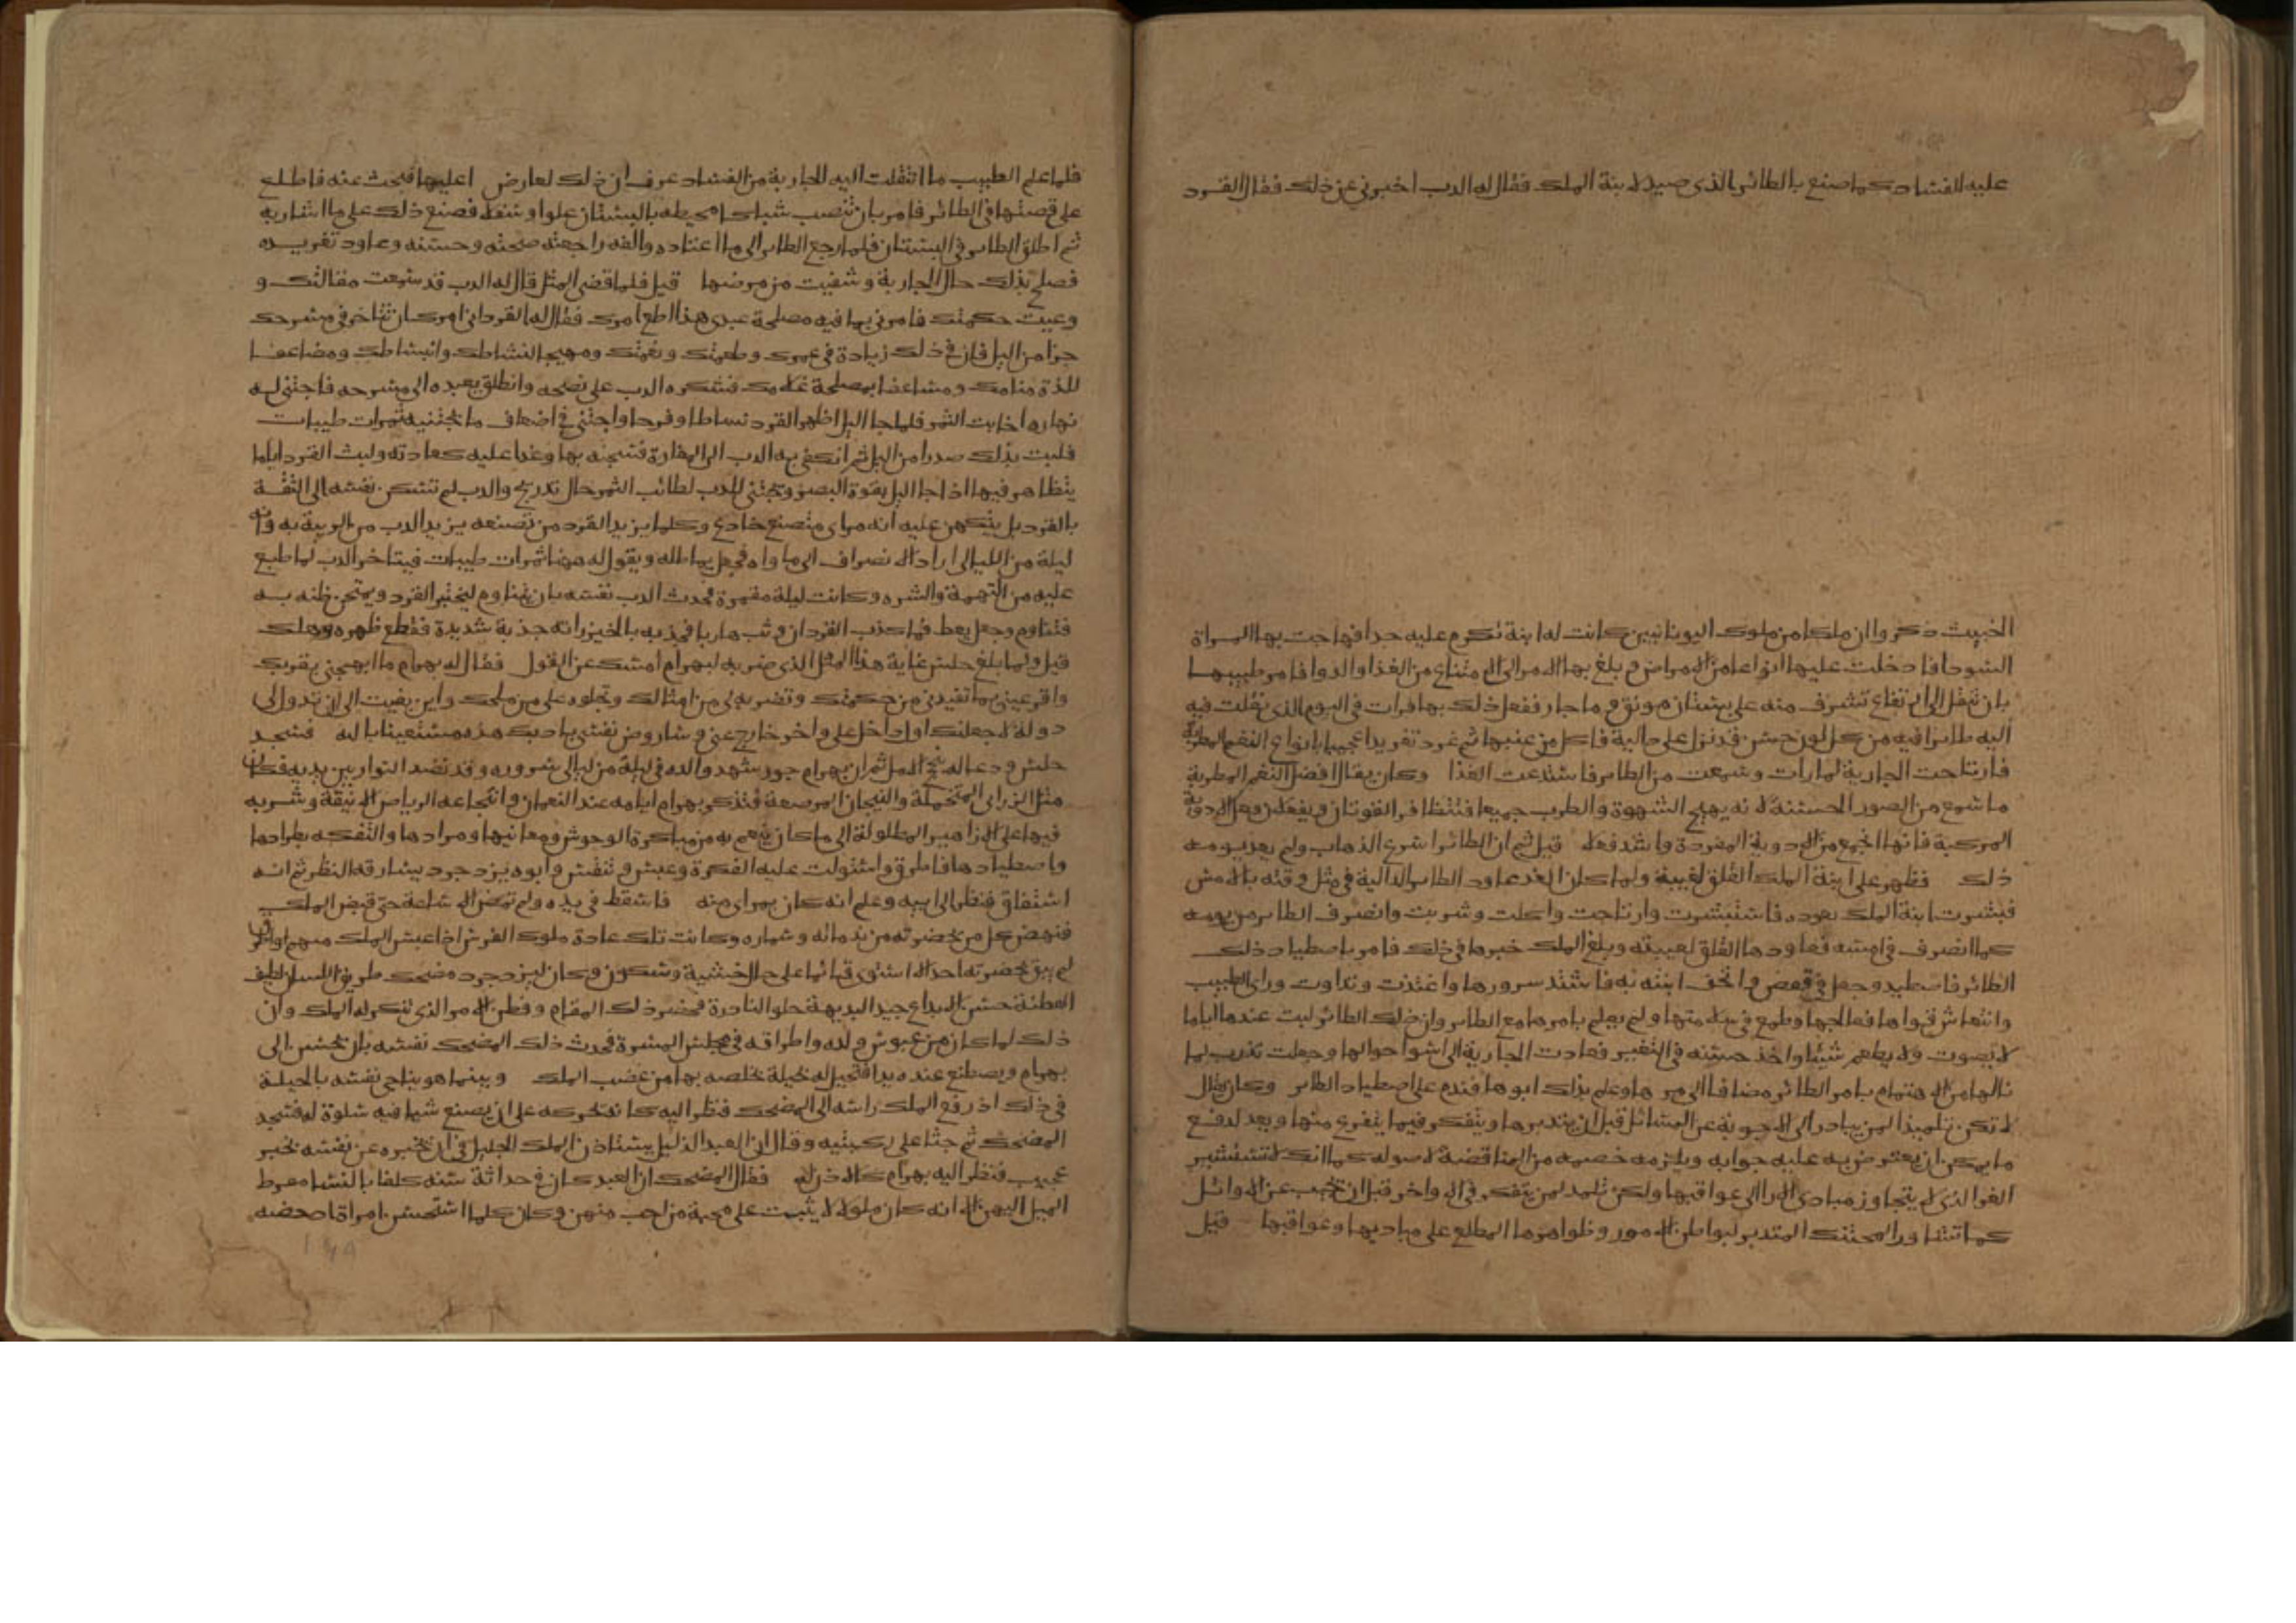 عليه الفساد كما صنع بالطائر الذى صيد لابنة الملك فقال له الدب اخبرنى عن ذلك فقال القرد
الخبيث ذكروا ان ملكا من ملوك اليونانيين كانت له ابنة تكرم عليه جدا فهاجت بها المراة
السودا فادخلت عليها انواعا من الامراض وبلغ بها الامر الى الامتناع من الغذا والدوا فامر طبيبها
بان تنقل الى ارتفاع تشرف منه على بستان مونق وما جار ففعل ذلك بها فرات فى اليوم الذى نقلت فيه
اليه طايرا فيه من كل لون حسن قد نزل على دالية فاكل من عنبها ثم غرد تغريدا عجيبا بانواع النغم المطربة
فارتاحت الجارية لما رات وسمعت من الطاير فاستدعت الغذا وكان يقال افضل النغم المطربة
ما سمع من الصور الحسنة لانه يهيج الشهوة والطرب جميعا فتتظافر القوتان ويفعلان فعل الادوية
المركبة فانها انجع من الادوية المفردة واشد فعلا قيل ثم ان الطائر اسرع الذهاب ولم يعد يومه
ذلك فظهر على ابنة الملك القلق لغيبته ولما كان الغد عاود الطاير الدالية فى مثل وقته بالامس
فبشرت ابنة الملك بعوده فاستبشرت وارتاحت واكلت وشربت وانصرف الطاير من يومه
كما انصرف فى امسه فعاودها القلق لغيبته وبلغ الملك خبرها فى ذلك فامر باصطياد ذلك
الطائر فاصطيد وجعل فى قفص واتحف ابنته به فاشتد سرورها واغتذت وتداوت وراى الطبيب
وانتعاش قواها فعالجها وطمع فى سلامتها ولم يعلم بامرها مع الطاير وان ذلك الطائر لبث عندها اياما
لا يصوت ولا يطعم شيئا واخذ حسنه فى التغير فعادت الجارية الى اسوا احوالها وجعلت تذوب لما
نالها من الاهتمام بامر الطائر مضافا الى مرضها وعلم بذلك ابوها فندم على اصطياد الطائر وكان يقال
لا تكن تلميذا لمن يبادر الى الاجوبة عن المسائل قبل ان يتدبرها ويتفكر فيما يتفرع منها ويعد لدفع
ما يمكن ان يعترض به عليه جوابه ويلزمه خصمه من المناقضة لاصوله كما انك لا تستشير
الغر الذى لم يتجاوز مبادى الارا الى عواقبها ولكن تلمذ لمن يتفكر فى الاواخر قبل ان يجيب عن الاوائل
كما تشاور المحتنك المتدبر لبواطن الامور وظواهرها المطلع على مباديها وعواقبها قيل
فلما علم الطبيب ما انتقلت اليه الجارية من الفساد عرف ان ذلك لعارض عليها فبحث عنه فاطلع
على قصتها فى الطائر فامر بان تنصب شباك محيطه بالبستان علوا وسفلا فصنع ذلك على ما اشار به
ثم اطلق الطاير فى البستان فلما رجع الطاير الى ما اعتاده والفه راجعته صحته وحسنه وعاود تغريده
فصلح بذلك حال الجارية وشفيت من مرضها قيل فلما قضى المثل قال له الدب قد سمعت مقالتك و
وعيت حكمتك فامرنى بما فيه مصلحة عبدى هذا اطع امرك فقال له القرد انى امرك ان تتاخر فى مسرحك
جزا من اليل فان فى ذلك زيادة فى عمرك وطعمتك ونعمتك ومهيجا لنشاطك وانبساطك ومضاعفا
للذة منامك ومشاعفا بمصلحة غلامك فشكره الدب على نصحه وانطلق بعبده الى مسرحه فاجتنى له
نهاره اخابث الثمر فلما جا اليل اظهر القرد نشاطا وفرحا واجتنى فى اضعاف ما يجتنيه ثمرات طيبات
فلبث بذلك صدرا من اليل ثم انكفى به الدب الى المغارة فسجنه بها وغدا عليه كعادته ولبث القرد اياما
يتظاهر فيها اذا جا اليل بقوة البصر ويجتنى للدب لطائب الثمر حال تدريج والدب لم تسكن نفسه الى الثقة
بالقرد بل يتكهن عليه انه مراى متصنع خادع وكلما يزيد القرد من تصنعه يزيد الدب من الريبة به وانه
ليلة من الليالى اراد الانصراف الى ماواه فجعل يماطله ويقول له ههنا ثمرات طيبات فيتاخر الدب لما طبع
عليه من النهمة والشره وكانت ليلة مقمرة فحدث الدب نفسه بان يتناوم ليختبر القرد ويمتحن ظنه به
فتناوم وجعل يغط فما كذب القرد ان وثب هاربا فجذبه بالخيزرانة جذبة شديدة فقطع ظهره وهلك
قيل ولما بلغ حلس غاية هذا المثل الذى ضربه لبهرام امسك عن القول فقال له بهرام ما ابهجنى بقربك
واقر عينى بما تفيدنى من حكمتك وتضربه لى من امثالك وتجلوه على من ملحك واين بقيت الى ان تدول لى
دولة لاجعلنك اول داخل على واخر خارج عنى وساروض نفسى بادبك هذه مستعينا بالله فسجد
حلس ودعا له بنجح الامل ثم ان بهرام جور شهد والده فى ليلة من ليالى سروره وقد نضد النوار بين يديه فكان
مثل الزرابى المخملة والتيجان المرصعة فتذكر بهرام ايامه عند النعمان وانتجاعه الرياض الانيقة وشربه
فيها على الازاهير المطلولة الى ما كان ينعم به من مباكرة الوحوش ومعانيها ومرادها والتفكه بطرادها
واصطيادها فاطرق واستولت عليه الفكرة وعبس وتنفس وابوه يزدجرد يسارقه النظر ثم انه
استفاق فنظر الى ابيه وعلم انه كان بمراى منه فاسقط فى يده ولم تمض الا ساعة حتى قبض الملك
فنهض كل من بحضرته من ندمائه وسماره وكانت تلك عادة ملوك الفرس اذا عبس الملك منهم
لم يبق بحضرته احد الا استوى قائما على حال الخشية وسكون وكان ليزدجرد مضحك طريف اللسان لطيف
الفطنة حسن الابداع جيد البديهة حلو النادرة فحضر ذلك المقام وفطن للامر الذى تنكر له الملك وان
ذلك لما كان من عبوس ولده واطراقه فى مجلس المسرة فحدث ذلك المضحك نفسه بان يحسن الى
بهرام ويصطنع عنده يدا فتحيل له حيلة تخلصه بها من غضب الملك وبينما هو يناجى نفسه بالحيلة
فى ذلك اذ رفع الملك راسه الى المضحك فنظر اليه كانه يحركه على ان يصنع شيا فيه سلوة له فسجد
المضحك ثم جثا على ركبتيه وقال ان العبد الذليل يستاذن الملك الجليل فى ان يخبره عن نفسه بخبر
عجيب فنظر اليه بهرام كالاذن له فقال المضحك ان العبد كان فى حداثة سنه كلفا بالنسا مفرط
الميل اليهن الا انه كان ملولا لا يثبت على محبة من احب منهن وكان كلما استحسن امراة امحضه